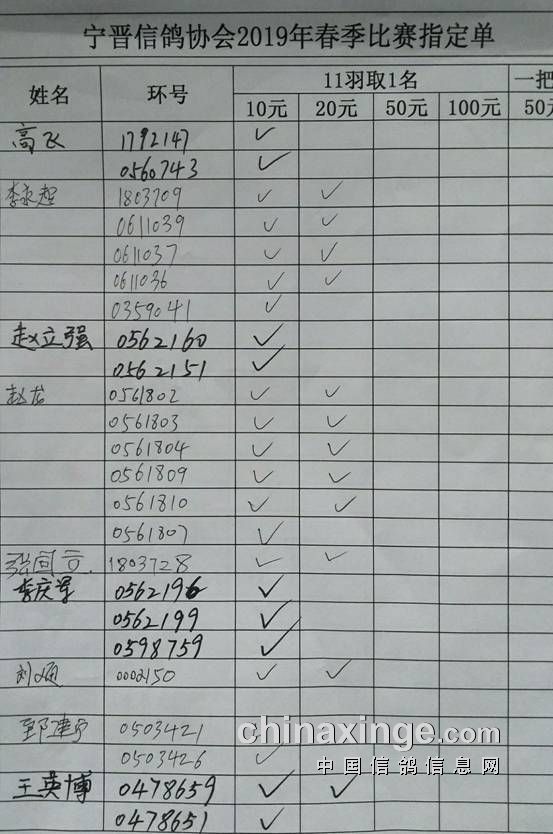 宁晋信鸽协会2019年春季比赛指定单
姓名 环号 11羽取1名 一把
10元 20元 50元 100元 50元
高飞 1792147 ✓
0560743 ✓
李永超 1803709 ✓ ✓
0611039 ✓ ✓
0611037 ✓ ✓
0611036 ✓ ✓
0359041 ✓
赵立强 0562160 ✓
0562151 ✓
赵龙 0561802 ✓ ✓
0561803 ✓ ✓
0561804 ✓ ✓
0561809 ✓ ✓
0561810 ✓ ✓
0561807 ✓
张国 1803728 ✓ ✓
李庆军 0562196 ✓
0562199 ✓
0598759 ✓
刘 0002150 ✓ ✓
0503421
0503426 ✓
王英博 0478659 ✓ ✓
0478651 ✓
chinaxinge.com
中国信鸽信息网